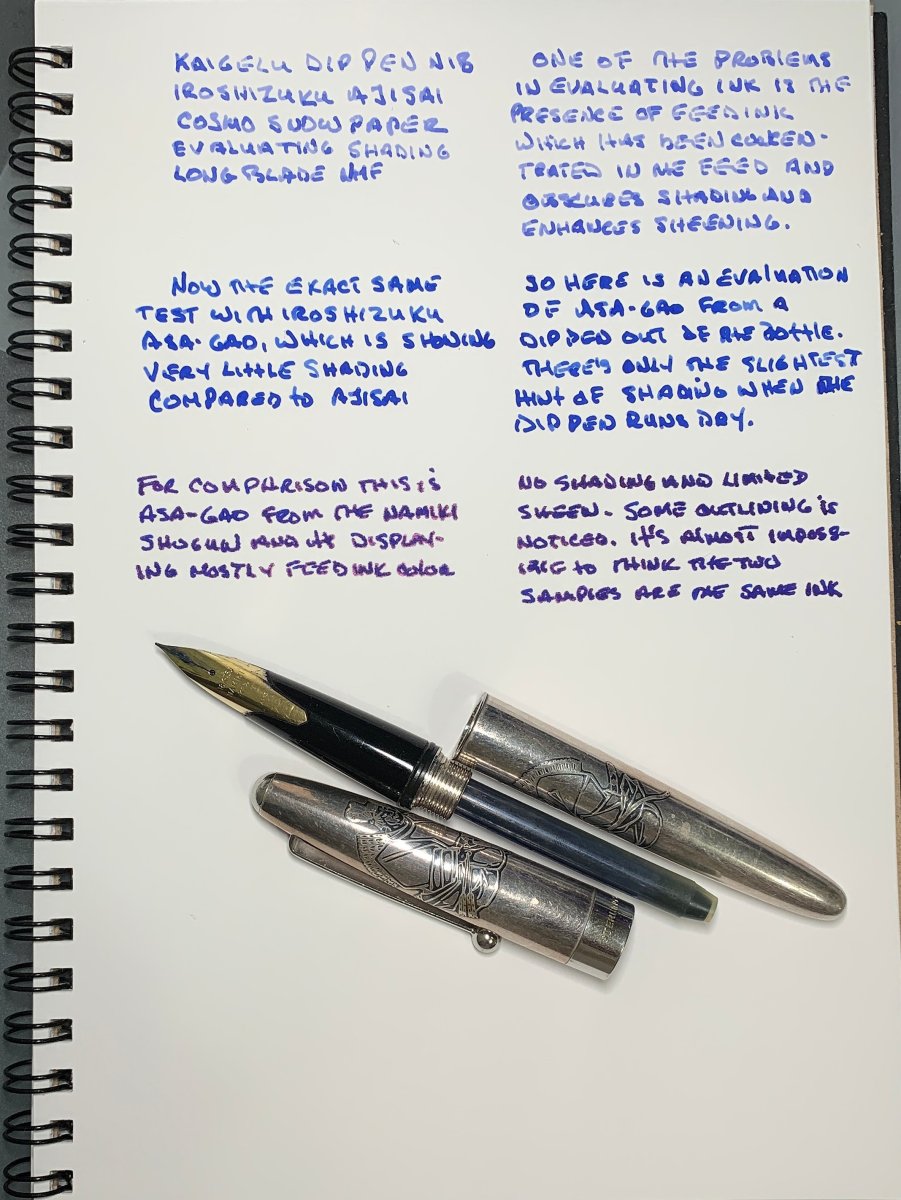 KAIGELU DIP PEN NIB
IROSHIZUKU AJISAI
COSMO SNOW PAPER
EVALUATING SHADING
LONG BLADE
ONE OF THE PROBLEMS
IN EVALUATING INK IS THE
PRESENCE OF FEED INK
WHICH HAS BEEN CONCEN-
TRATED IN THE FEED AND
OBSCURES SHADING AND
ENHANCES SHEENING.
NOW THE EXACT SAME
TEST WITH IROSHIZUKU
ASA-GAO, WHICH IS SHOWING
VERY LITTLE SHADING
COMPARED TO AJISAI
SO HERE IS AN EVALUATION
OF ASA-GAO FROM A
DIP PEN OUT OF THE BOTTLE.
THERE'S ONLY THE SLIGHTEST
HINT OF SHADING WHEN THE
DIP PEN RUNS DRY.
FOR COMPARISON THIS IS
ASA-GAO FROM THE NAMIKI
SHOGUN AND IS DISPLAY-
ING MOSTLY FEED INK COLOR
NO SHADING AND LIMITED
SHEEN. SOME OUTLINING IS
NOTICED. IT'S ALMOST IMPOSS-
IBLE TO THINK THE TWO
SAMPLES ARE THE SAME INK